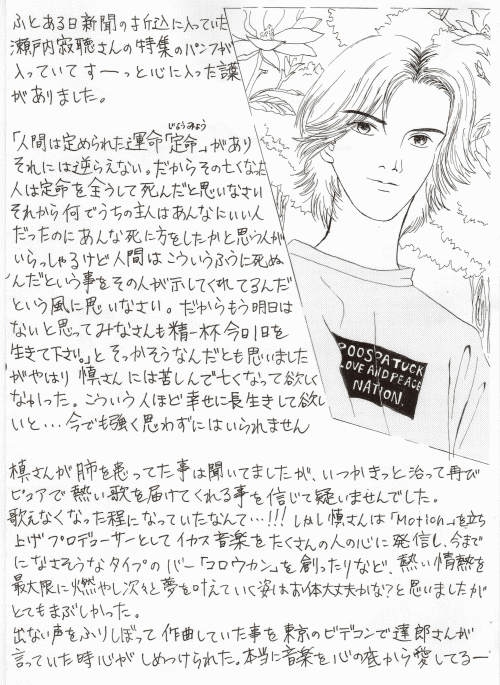 ふとある日新聞の折込に入っていた
瀬戸内寂聴さんの特集のパンフが
入っていて すーっと心に入った言葉
がありました。
「人間は定められた運命「定命」があり
じょうみょう
それには逆らえない。だからその亡くなった
人は定命を全うして死んだと思いなさい
それから何でうちの主人はあんなにいい人
だったのにあんな死に方をしたかと思う人が
いらっしゃるけど人間はこういうふうに死ぬ
んだという事をその人が示してくれてるんだ
という風に思いなさい。だからもう明日は
ないと思ってみなさんも精一杯今日1日を
生きて下さい。」とそっかそうなんだとも思いました
がやはり 慎さんには苦しんで亡くなって欲しく
なかった。こういう人ほど幸せに長生きして欲し
いと…今でも強く思わずにはいられません
POOSPATUCK
LOVE AND PEACE
NATION.
慎さんが肺を患ってた事は聞いてましたが、いつかきっと治って再び
ピュアで熱い歌を届けてくれる事を信じて疑いませんでした。
歌えなくなった程になっていたなんて…!!! しかし慎さんは「Motion」を立ち
上げプロデューサーとしてイカス音楽をたくさんの人の心に発信し、今まで
になさそうなタイプのバー「コロウカン」を創ったりなど、熱い情熱を
最大限に燃やし次々と夢を叶えていく姿はお体大丈夫かな?と思いましたが
とてもまぶしかった。
出ない声をふりしぼって作曲していた事を東京のビデコンで達郎さんが
言っていた時心がしめつけられた。本当に音楽を心の底から愛してるー